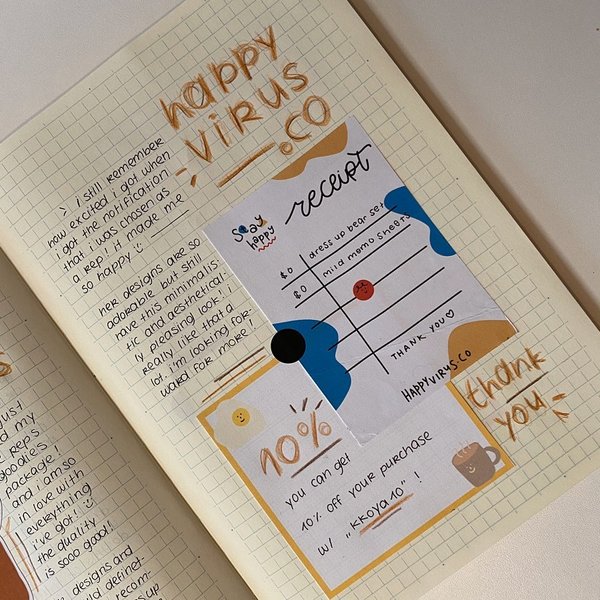 happy
virus
.co
> i still remember
how excited i got when
i got the notification
that i was chosen as
a rep! it made me
so happy
her designs are so
adorable but still
have this minimalis-
tic and aesthetical-
ly pleasing look! i
really like that a
lot. i'm looking for-
ward for more!
stay
happy
receipt
$0 dress up bear set
$0 mild memo sheets
THANK YOU
HAPPYVIRUS.CO
thank
you
10%
you can get
10% off your purchase
w/ "KKOYA10" !
just
my
reps
goodies
package!
and i am so
in love with
everything
i've got!
the quality
is sooo good!
designs and
definet-
recom-